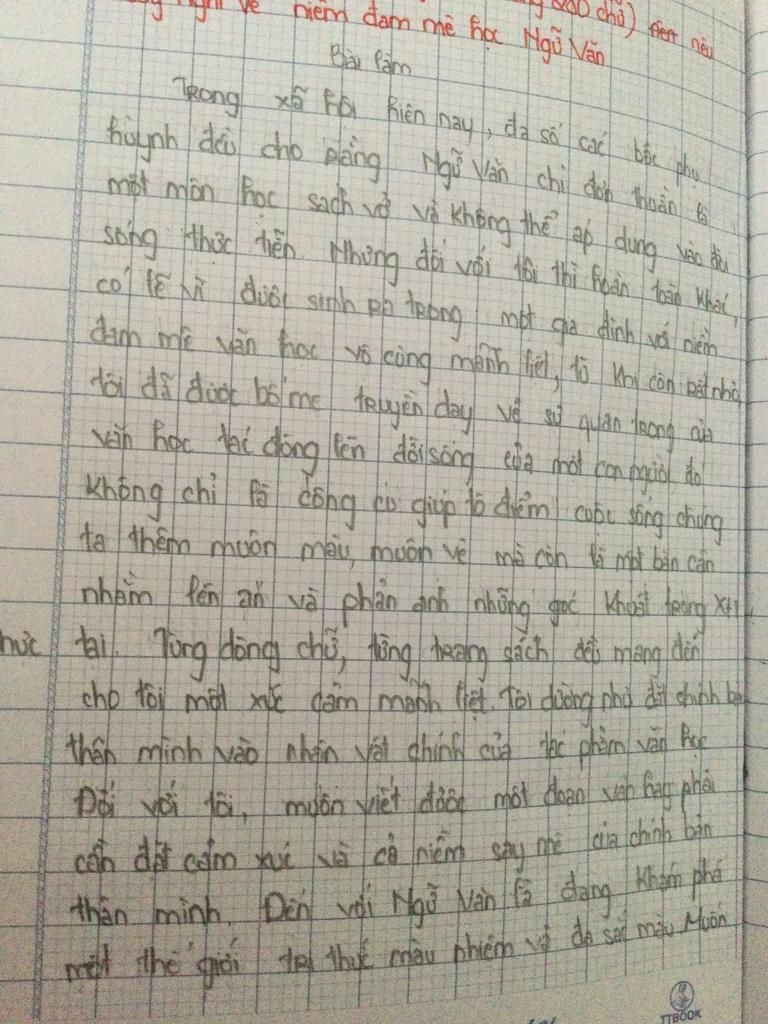 nghĩ về niềm đam mê học Ngữ Văn
Bài làm
Trong xã hội hiện nay, đa số các bậc phụ
huỳnh đều cho rằng Ngữ Văn chỉ đơn thuần là
một môn học sách vở và không thể áp dụng vào đời
sống thực tiễn. Nhưng đối với tôi thì hoàn toàn khác,
có lẽ vì được sinh ra trong một gia đình với niềm
đam mê văn học vô cùng mãnh liệt, từ khi còn rất nhỏ
tôi đã được bố mẹ truyền dạy về sự quan trọng của
văn học tác động lên đời sống của một con người đó
không chỉ là công cụ giúp tô điểm cuộc sống chúng
ta thêm muôn màu, muôn vẻ mà còn là một bàn cân
nhằm lên án và phản ánh những góc khuất trong XH
thực tại. Từng dòng chữ, từng trang sách đều mang đến
cho tôi một xúc cảm mãnh liệt. Tôi dường như đặt chính bản
thân mình vào nhân vật chính của tác phẩm văn học
Đối với tôi, muốn viết được một đoạn văn hay phải
cần đặt cảm xúc và cả niềm say mê của chính bản
thân mình. Đến với Ngữ Văn là đang khám phá
một thế giới tri thức màu nhiệm và đa sắc màu Muốn
TTBOOK